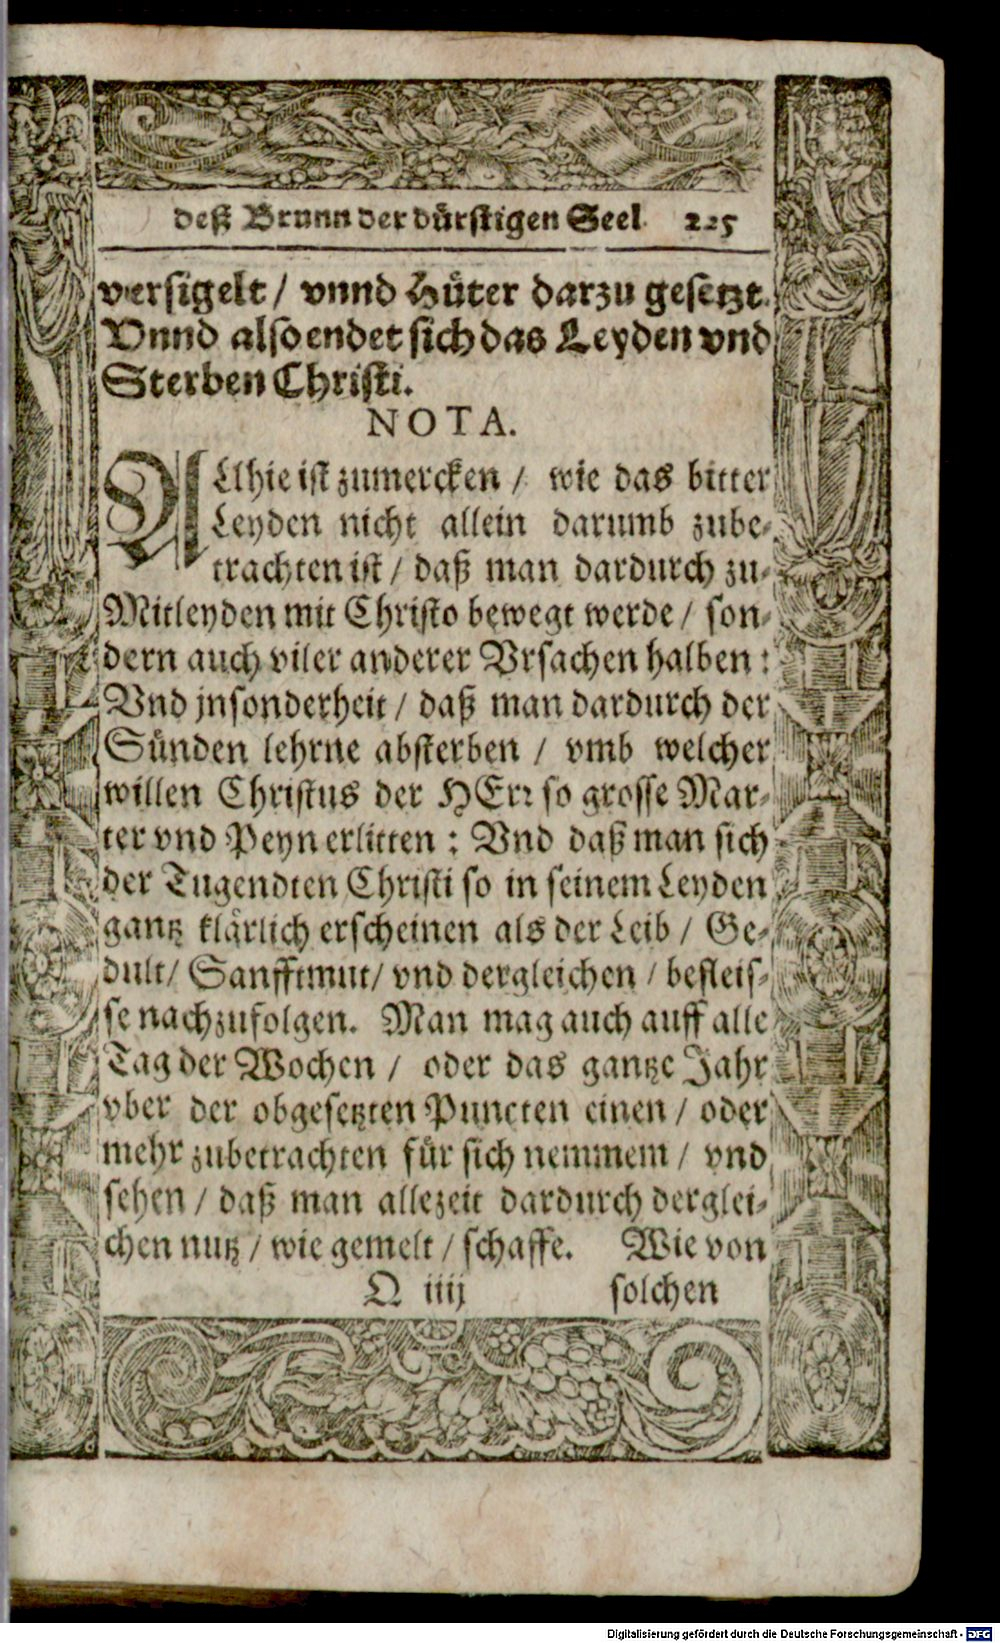 deß Brunn der dürstigen Seel. 225
versigelt / vnnd Hüter darzu gesetzt.
Vnnd also endet sich das Leyden vnd
Sterben Christi.
NOTA.
ALhie ist zumercken / wie das bitter
Leyden nicht allein darumb zube-
trachten ist / daß man dardurch zu-
Mitleyden mit Christo bewegt werde / son-
dern auch viler anderer Vrsachen halben:
Vnd jnsonderheit / daß man dardurch der
Sünden lehrne absterben / vmb welcher
willen Christus der HErr so grosse Mar-
ter vnd Peyn erlitten: Vnd daß man sich
der Tugendten Christi so in seinem Leyden
gantz klärlich erscheinen als der Leib / Ge-
dult / Sanfftmut / vnd dergleichen / befleis-
se nachzufolgen. Man mag auch auff alle
Tag der Wochen / oder das gantze Jahr
vber der obgesetzten Puncten einen / oder
mehr zubetrachten für sich nemmem / vnd
sehen / daß man allezeit dardurch derglei-
chen nutz / wie gemelt / schaffe. Wie von
Q iiij solchen
Digitalisierung gefördert durch die Deutsche Forschungsgemeinschaft - DFG